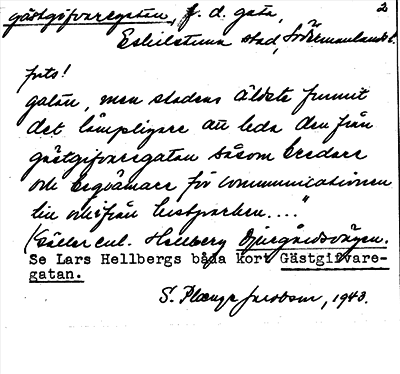 gästgifvaregatan, f. d. gata, 2
Eskilstuna stad, Södermanlands l.
forts!
gatan, men stadens äldste funnit
det lämpligare att leda den från
gästgifvaregatan såsom bredare
och beqvämare för communicationen
till och ifrån lustparken...."
(Gäller enl. Hellberg Djurgårdsvägen.
Se Lars Hellbergs båda kort Gästgifvare-
gatan.
S. Plænge Jacobson, 1943.